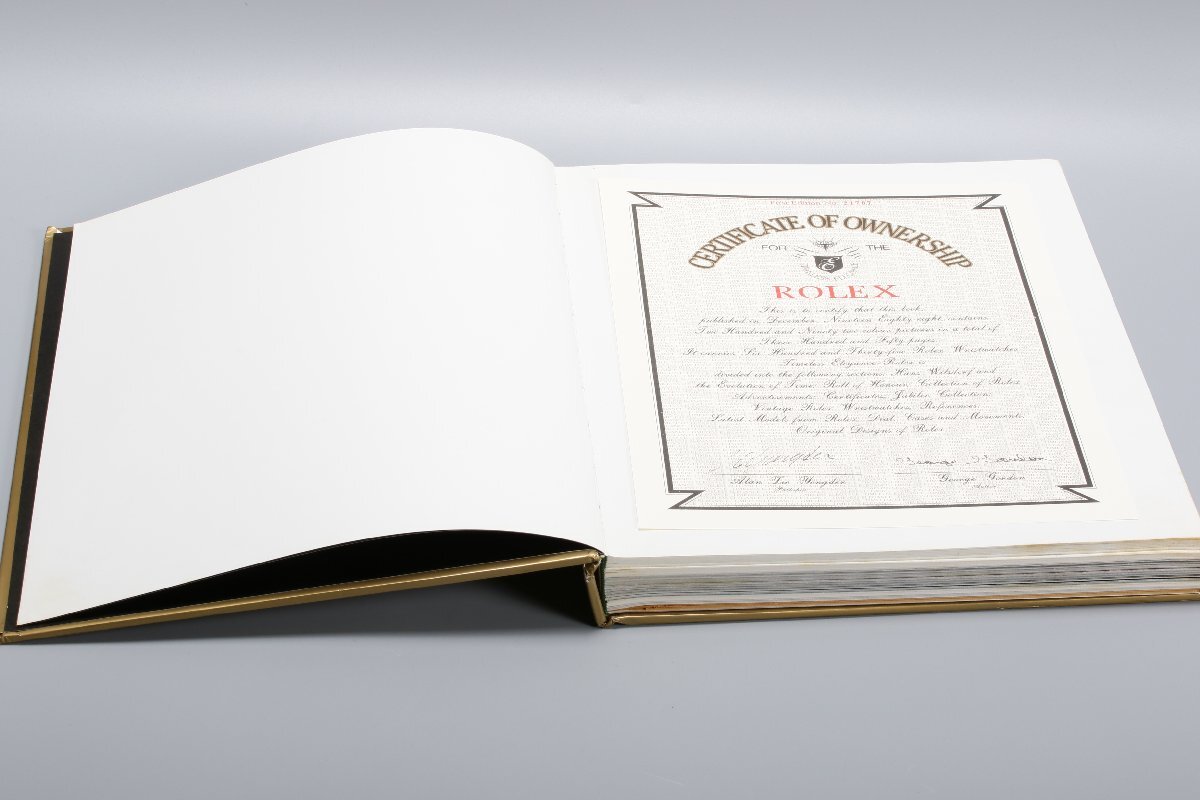 First Edition No. 21707
CERTIFICATE OF OWNERSHIP
FOR THE
ROLEX
This is to certify that this book
published in December Nineteen Eighty eight contains
Two Hundred and Ninety two colour pictures in a total of
Three Hundred and Fifty pages
It covers Six Hundred and Thirty-five Rolex Wristwatches
Timeless Elegance Rolex is
divided into the following sections: Hans Wilsdorf and
the Evolution of Time, Roll of Honour, Collection of Rolex
Advertisements, Certificates, Jubilee Collection,
Vintage Rolex Wristwatches, References,
Latest Models from Rolex, Dial, Cases and Movements,
Original Designs of Rolex
George Gordon
Publisher
George Gordon
Author